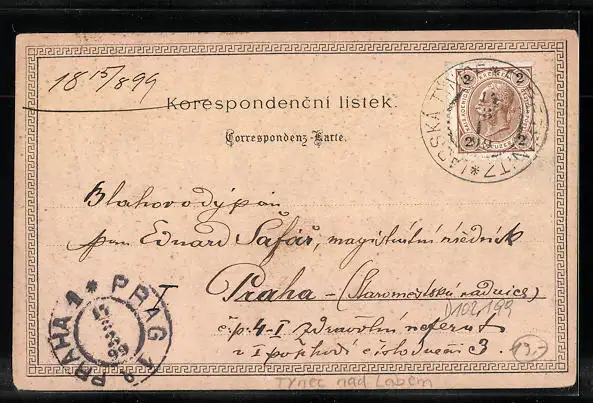 18 15/8 99
Korespondenční lístek.
Correspondenz-Karte.
2 2
2 2
LABSKÁ TÝNICE
Blahorodý pán
pan Eduard Šafář, magistrátní úředník
Praha - (Staroměstská radnice)
D102,199
č.p. 4-I zdravotní referat
v I poschodí číslo dveří 3.
PRAHA 1 * PRAG 1
99
Týnec nad Labem